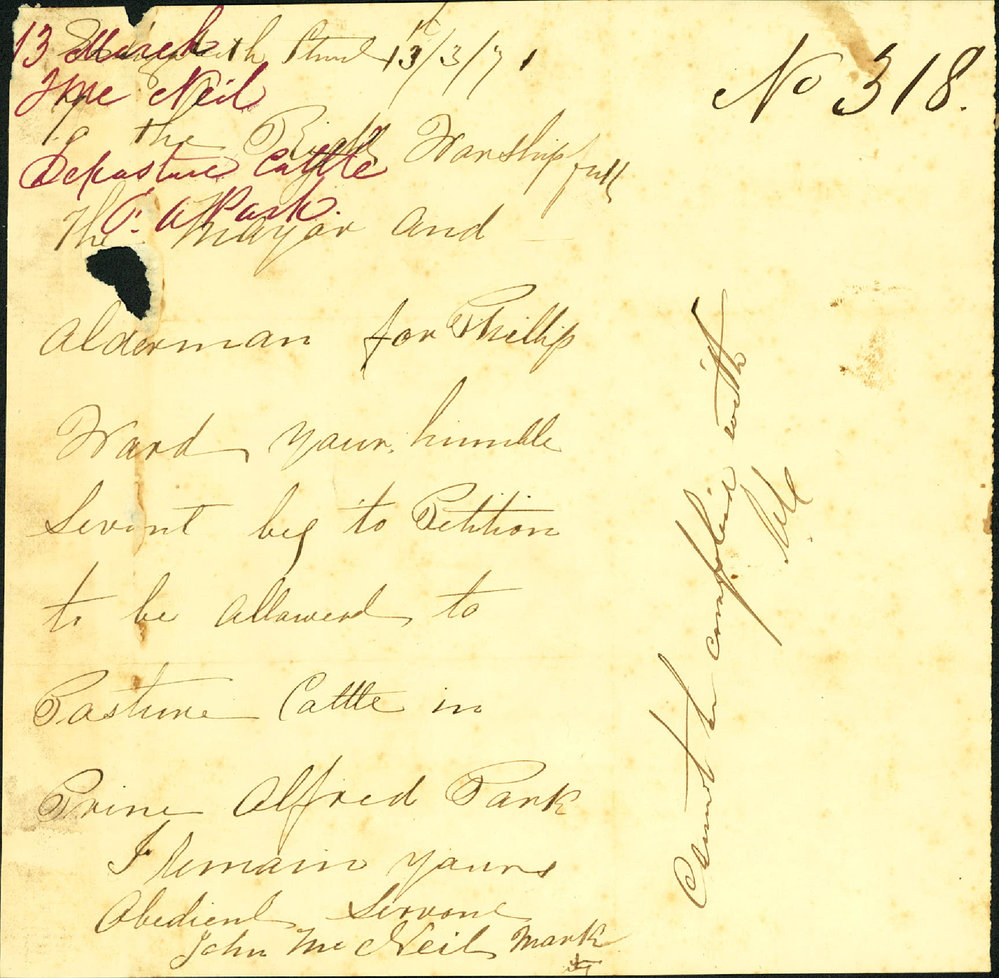 No 318.
13 March
J Mc Neil
Depasture Cattle
P. A Park.
Elizabeth Street 13th/3/71
To the Right Worshipfull
The Mayor and
alderman for Phillip
Ward your humble
Servent beg to Petition
to be allowed to
Pasture Cattle in
Prine Alfred Park
I remain yours
Obedient Servent
John Mc Neil Mark
Cannot be complied with